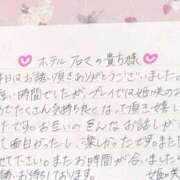 ホテル アロマの貴方様
本日はお誘い頂きありがとうございました。
短い時間でしたが、プレイでは姫咲の
でたくさん気持ち良くなって頂き嬉し
たです。お互いのえんなお話しが
て面白かったし、楽しかったです。また
せて下さい。またお時間が合いまし
お待ちしております。 姫咲